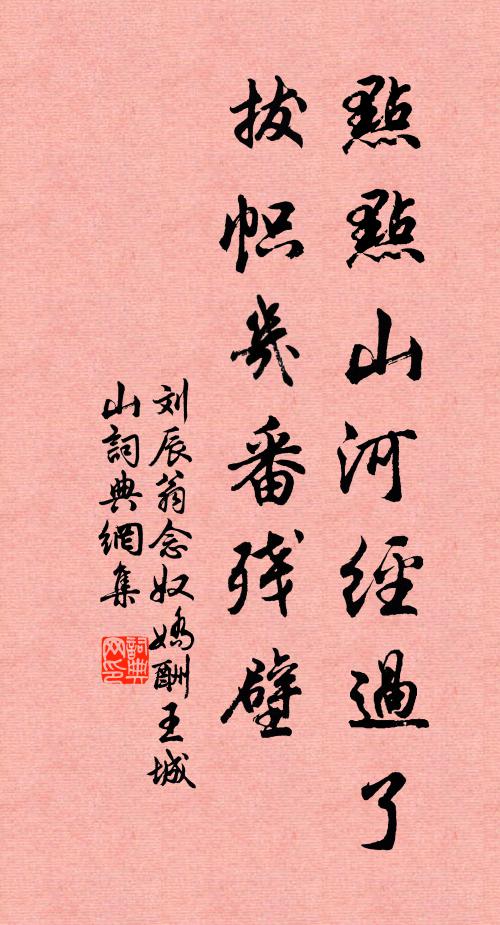 點點山河經過了
拔帜幾番残壁
刘辰翁念奴嬌酬王城
山詞典網集
詞典
网印